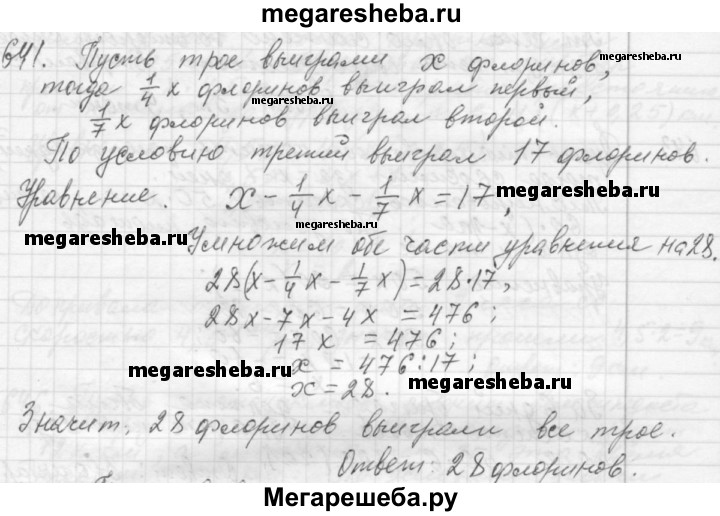 megaresheba.ru
641. Пусть трое выиграли x флоринов,
тогда 1/4 x флоринов выиграл первый,
megaresheba.ru
megaresheba.ru
1/7 x флоринов выиграл второй.
По условию третий выиграл 17 флоринов.
Уравнение. x - 1/4 x - 1/7 x = 17,
megaresheba.ru
megaresheba.ru
Умножим обе части уравнения на 28.
28(x - 1/4 x - 1/7 x) = 28·17,
28x - 7x - 4x = 476;
17x = 476;
megaresheba.ru
megaresheba.ru
x = 476:17;
x = 28.
Значит, 28 флоринов выиграли все трое.
Ответ: 28 флоринов.
Мегарешеба.ру